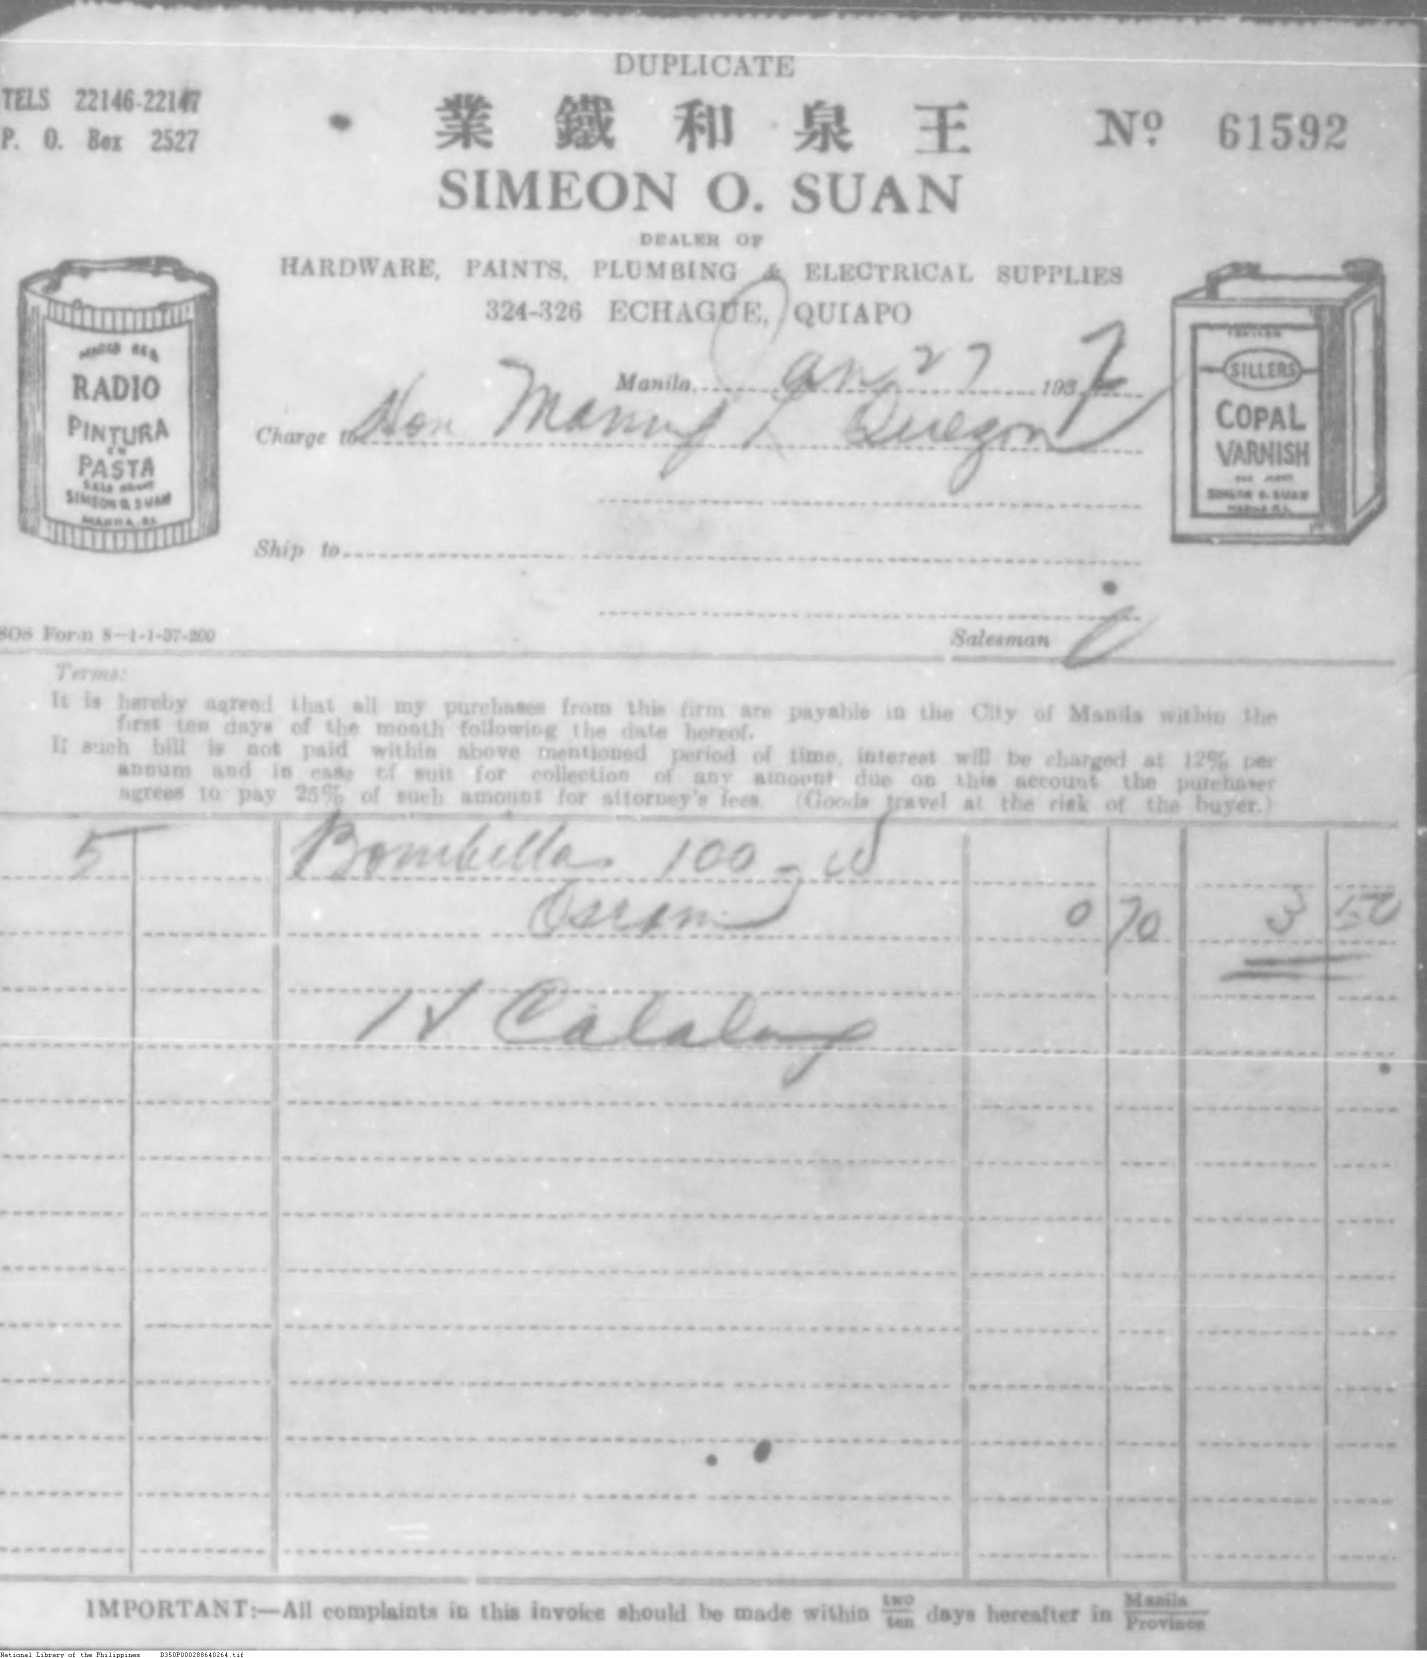 DUPLICATE
TELS 22146-22147
P. O. Box 2527
業 鐵 和 泉 王
No 61592
SIMEON O. SUAN
DEALER OF
HARDWARE, PAINTS, PLUMBING & ELECTRICAL SUPPLIES
324-326 ECHAGUE, QUIAPO
RADIO
PINTURA
EN
PASTA
SIMEON O. SUAN
MANILA, P.I.
SILLERS
COPAL
VARNISH
SIMEON O. SUAN
MANILA P.I.
Manila, Jan 27 1937
Charge to Hon Manuel L Quezon
Ship to
SOS Form 8-1-1-37-200
Salesman
Terms:
It is hereby agreed that all my purchases from this firm are payable in the City of Manila within the
first ten days of the month following the date hereof.
If such bill is not paid within above mentioned period of time, interest will be charged at 12% per
annum and in case of suit for collection of any amount due on this account the purchaser
agrees to pay 25% of such amount for attorney's fees. (Goods travel at the risk of the buyer.)
5 Bombillas 100 - W
Osram 0 70 3 50
IMPORTANT:—All complaints in this invoice should be made within two/ten days hereafter in Manila/Province
National Library of the Philippines B350P000288640264.tif